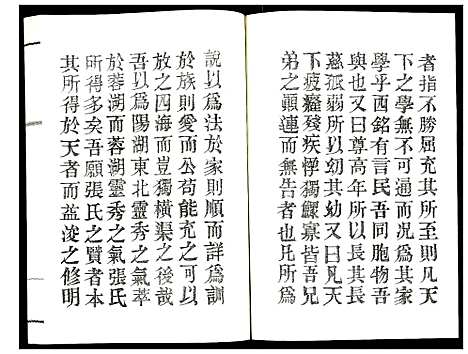 者指不勝屈充其所至則凡天
下之學無不可通而況其家
學乎西銘有言民吾同胞物吾
與也又曰尊高年所以長其長
慈孤弱所以幼其幼又曰凡天
下疲癃殘疾惸獨鰥寡皆吾兄
弟之顛連而無告者也凡所爲
說以爲法於家則順而詳爲訓
於族則愛而公苟能充之可以
放之四海而豈獨橫渠之後哉
吾以爲陽湖東北靈秀之氣萃
於蓉湖而蓉湖靈秀之氣張氏
所得多矣吾願張氏之賢者本
其所得於天者而益浚之修明